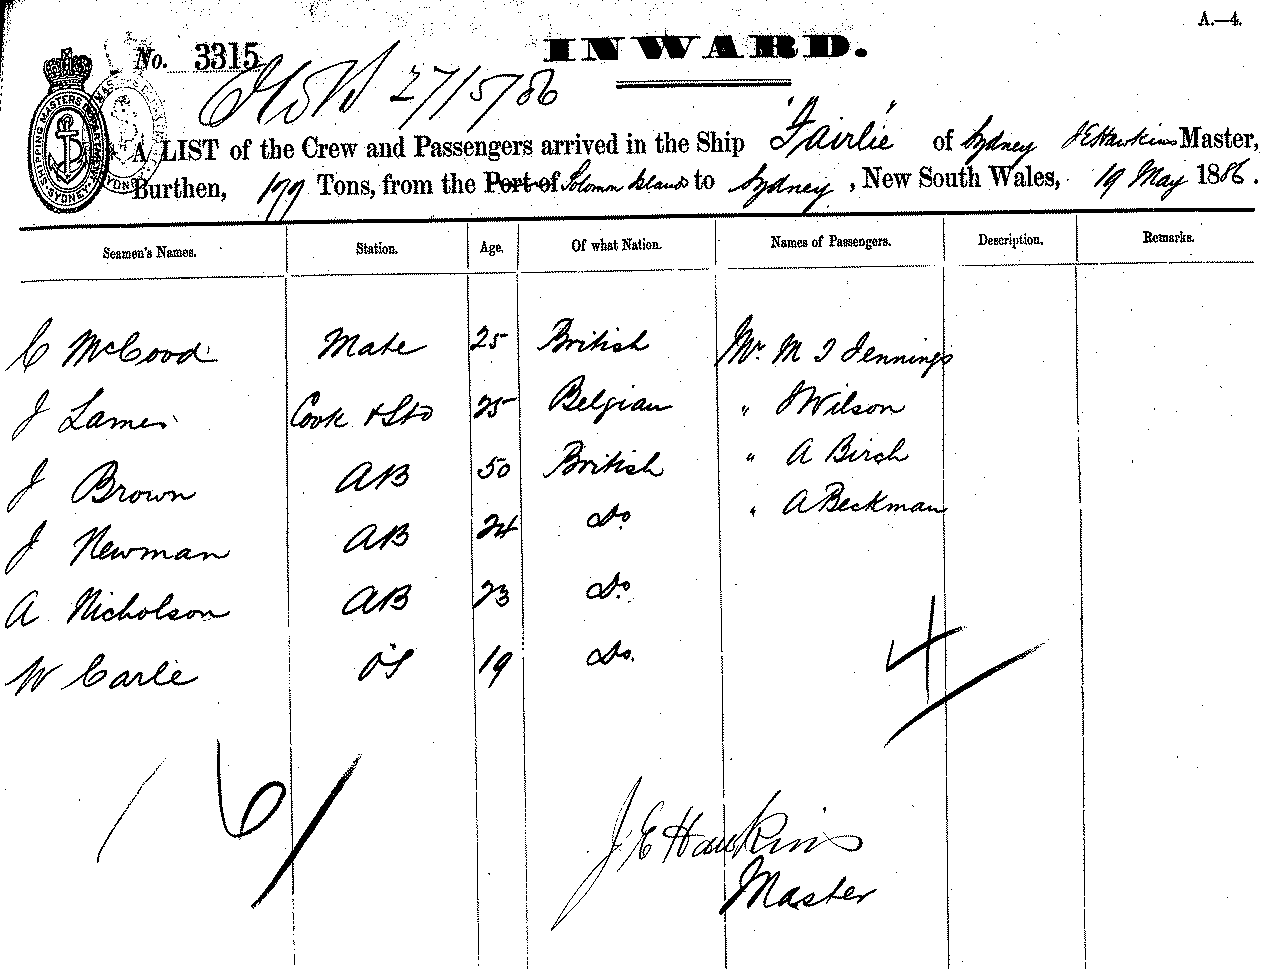 A.—4.
No. 3315
INWARD.
27/5/86
A LIST of the Crew and Passengers arrived in the Ship "Fairlie" of Sydney J E Hawkins Master,
Burthen, 179 Tons, from the Port of Solomon Islands to Sydney, New South Wales, 19 May 1886.
Seamen's Names. Station. Age. Of what Nation. Names of Passengers. Description. Remarks.
C McCood Mate 25 British Mr. M I Jennings
J Lames Cook & Std 25 Belgian " J Wilson
J Brown AB 50 British " A Birch
J Newman AB 24 Do " A Beckman
A Nicholson AB 23 Do.
W Carlie OS 19 Do.
4
6
J. E Hawkins
Master